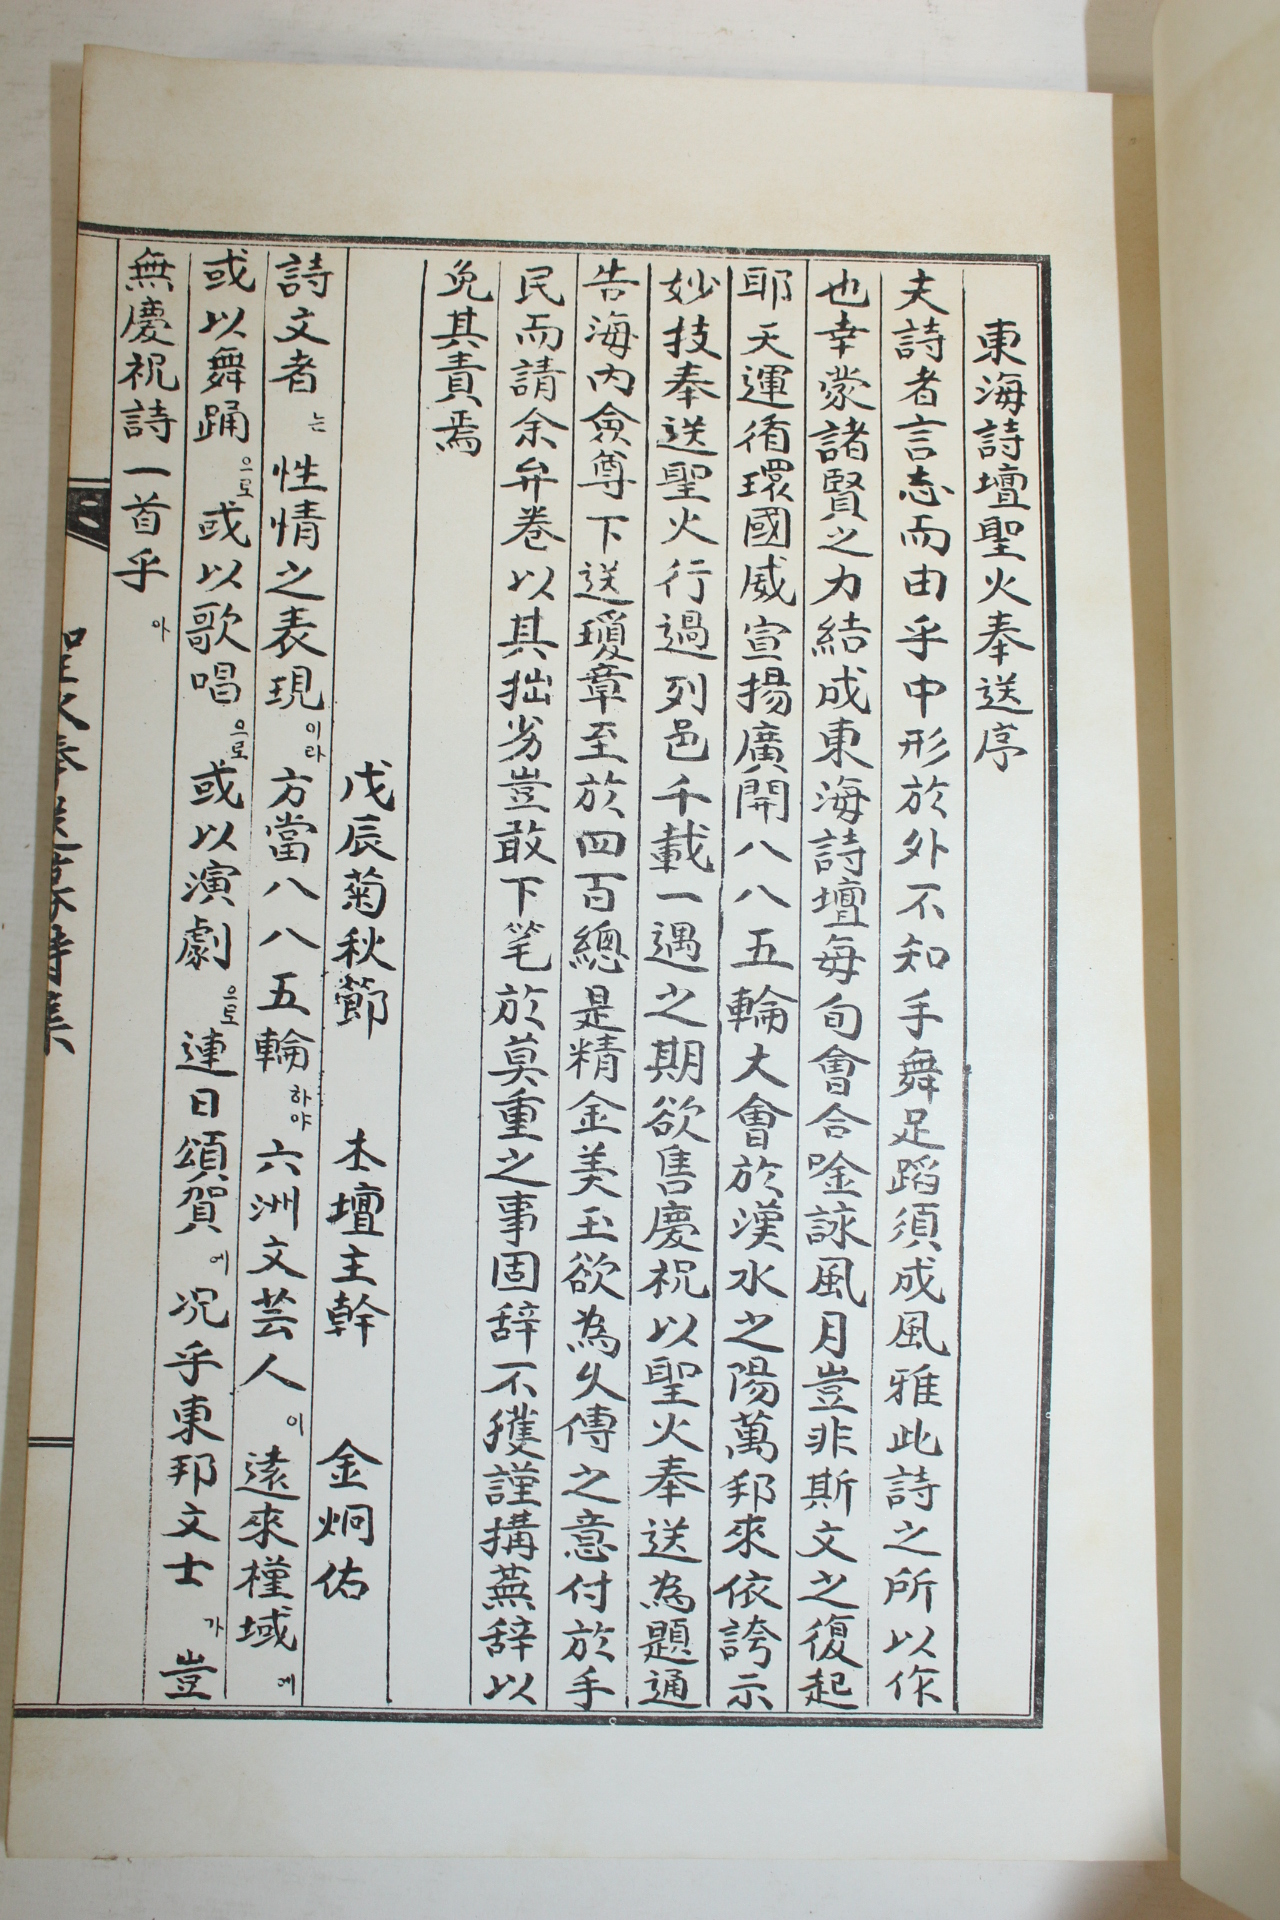 東海詩壇聖火奉送序
夫詩者言志而由乎中形於外不知手舞足蹈須成風雅此詩之所以作
也幸蒙諸賢之力結成東海詩壇每旬會合唫詠風月豈非斯文之復起
耶天運循環國威宣揚廣開八八五輪大會於漢水之陽萬邦來依誇示
妙技奉送聖火行過列邑千載一遇之期欲售慶祝以聖火奉送為題通
告海內僉尊下送瓊章至於四百總是精金美玉欲為久傳之意付於手
民而請余弁卷以其拙劣豈敢下笔於莫重之事固辞不獲謹搆蕪辞以
免其責焉
戊辰菊秋節 本壇主幹 金炯佑
詩文者는 性情之表現이라 方當八八五輪하야 六洲文芸人이 遠來槿域에
或以舞踊으로 或以歌唱으로 或以演劇으로 連日頌賀에 况乎東邦文士가 豈
無慶祝詩一首乎아
聖火奉送慕詩集